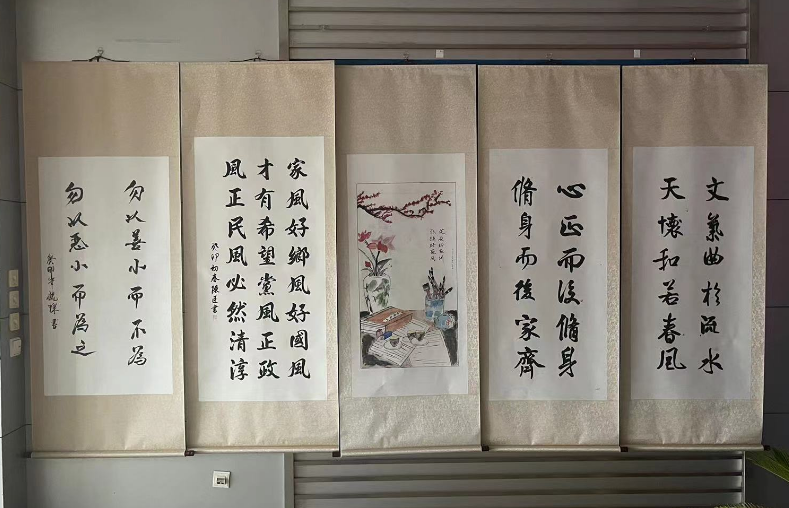 文氣曲於流水
天懷和若春风
心正而後脩身
脩身而後家齊
家風好鄉風好國風
才有希望黨風正政
風正民風必然清淳
癸卯初春
勿以善小而不為
勿以惡小而為之
癸卯春